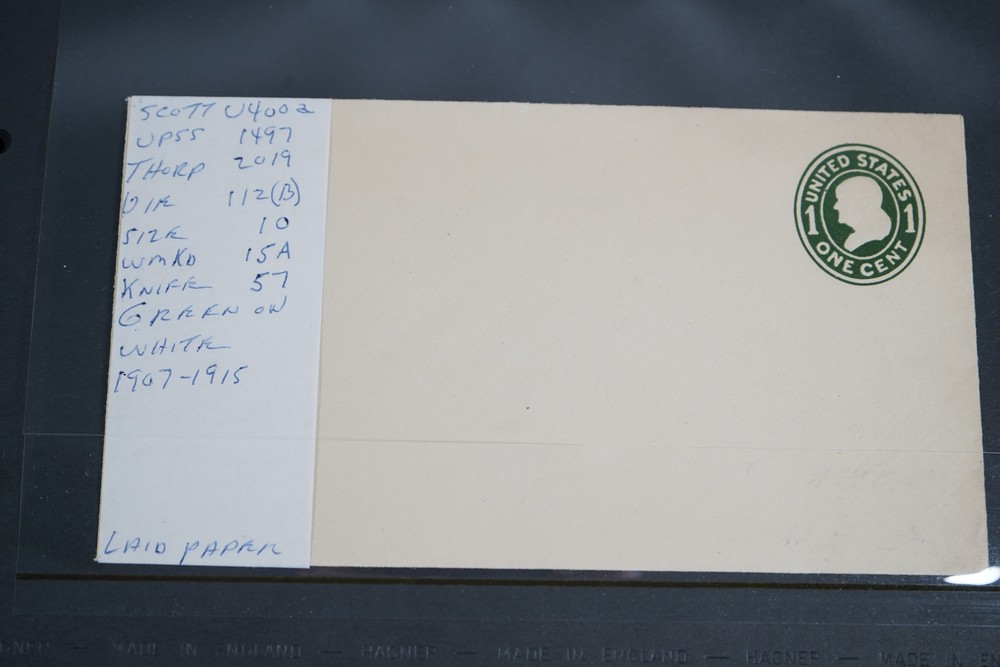 SCOTT U400a
UPSS 1497
THORP 2019
DIE 112(B)
SIZE 10
WMKD 15A
KNIFE 57
GREEN ON
WHITE
1907-1915
LAID PAPER
UNITED STATES
1 1
ONE CENT
HAGNER — MADE IN ENGLAND — HAGNER — MADE IN ENGLAND — HAGNER — MADE IN EN